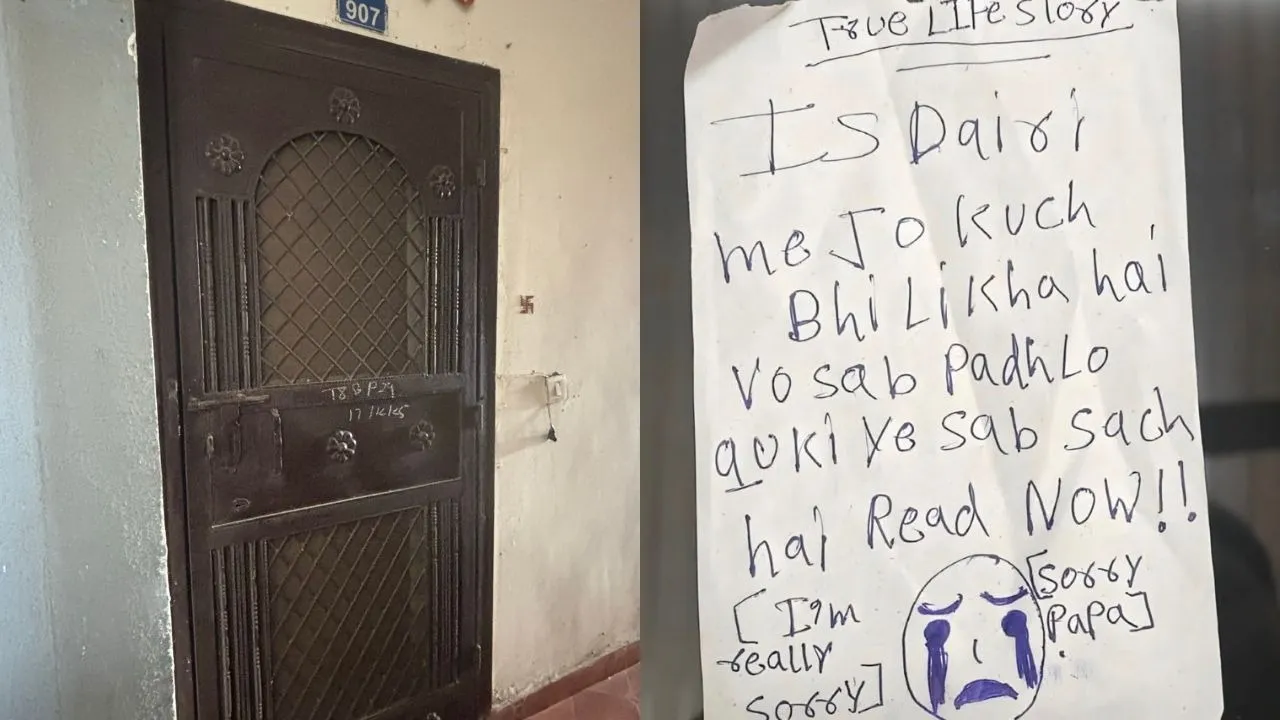 907
True Life Story
Is Dairi
me Jo kuch
Bhi Likha hai
Vo sab Padh Lo
quki ye sab sach
hai Read Now!!
[I'm
really
sorry]
[sorry
papa]